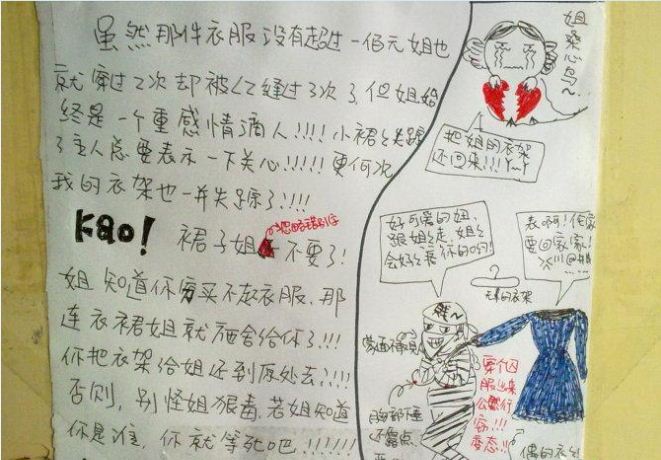 虽然那件衣服没有超过一佰元姐也
就穿过2次却被人缝过3次了,但姐始
终是一个重感情滴人!!!!小裙纟失踪
了主人总要表示一下关心!!!!!更何况
我的衣架也一并失踪了!!!!
Kao!
裙子姐 不要了!
姐知道你穷买不起衣服,那
连衣裙姐就施舍给你了!!!
你把衣架给姐还到原处去!!!!
否则,别怪姐狠毒,若姐知道
你是谁,你就等死吧!!!!!!!
姐
桑心鸟~
把姐的衣架
还回来!!!Y~Y
好可爱的妞,
跟姐走,姐
会好 你的哟!
表啊!偶
要回家家!
!!!@#
?
无辜的衣架
蒙面
胸部下垂
还露点
穿个囚
服出来
公然行
窃!!!
变态!!
偶的衣